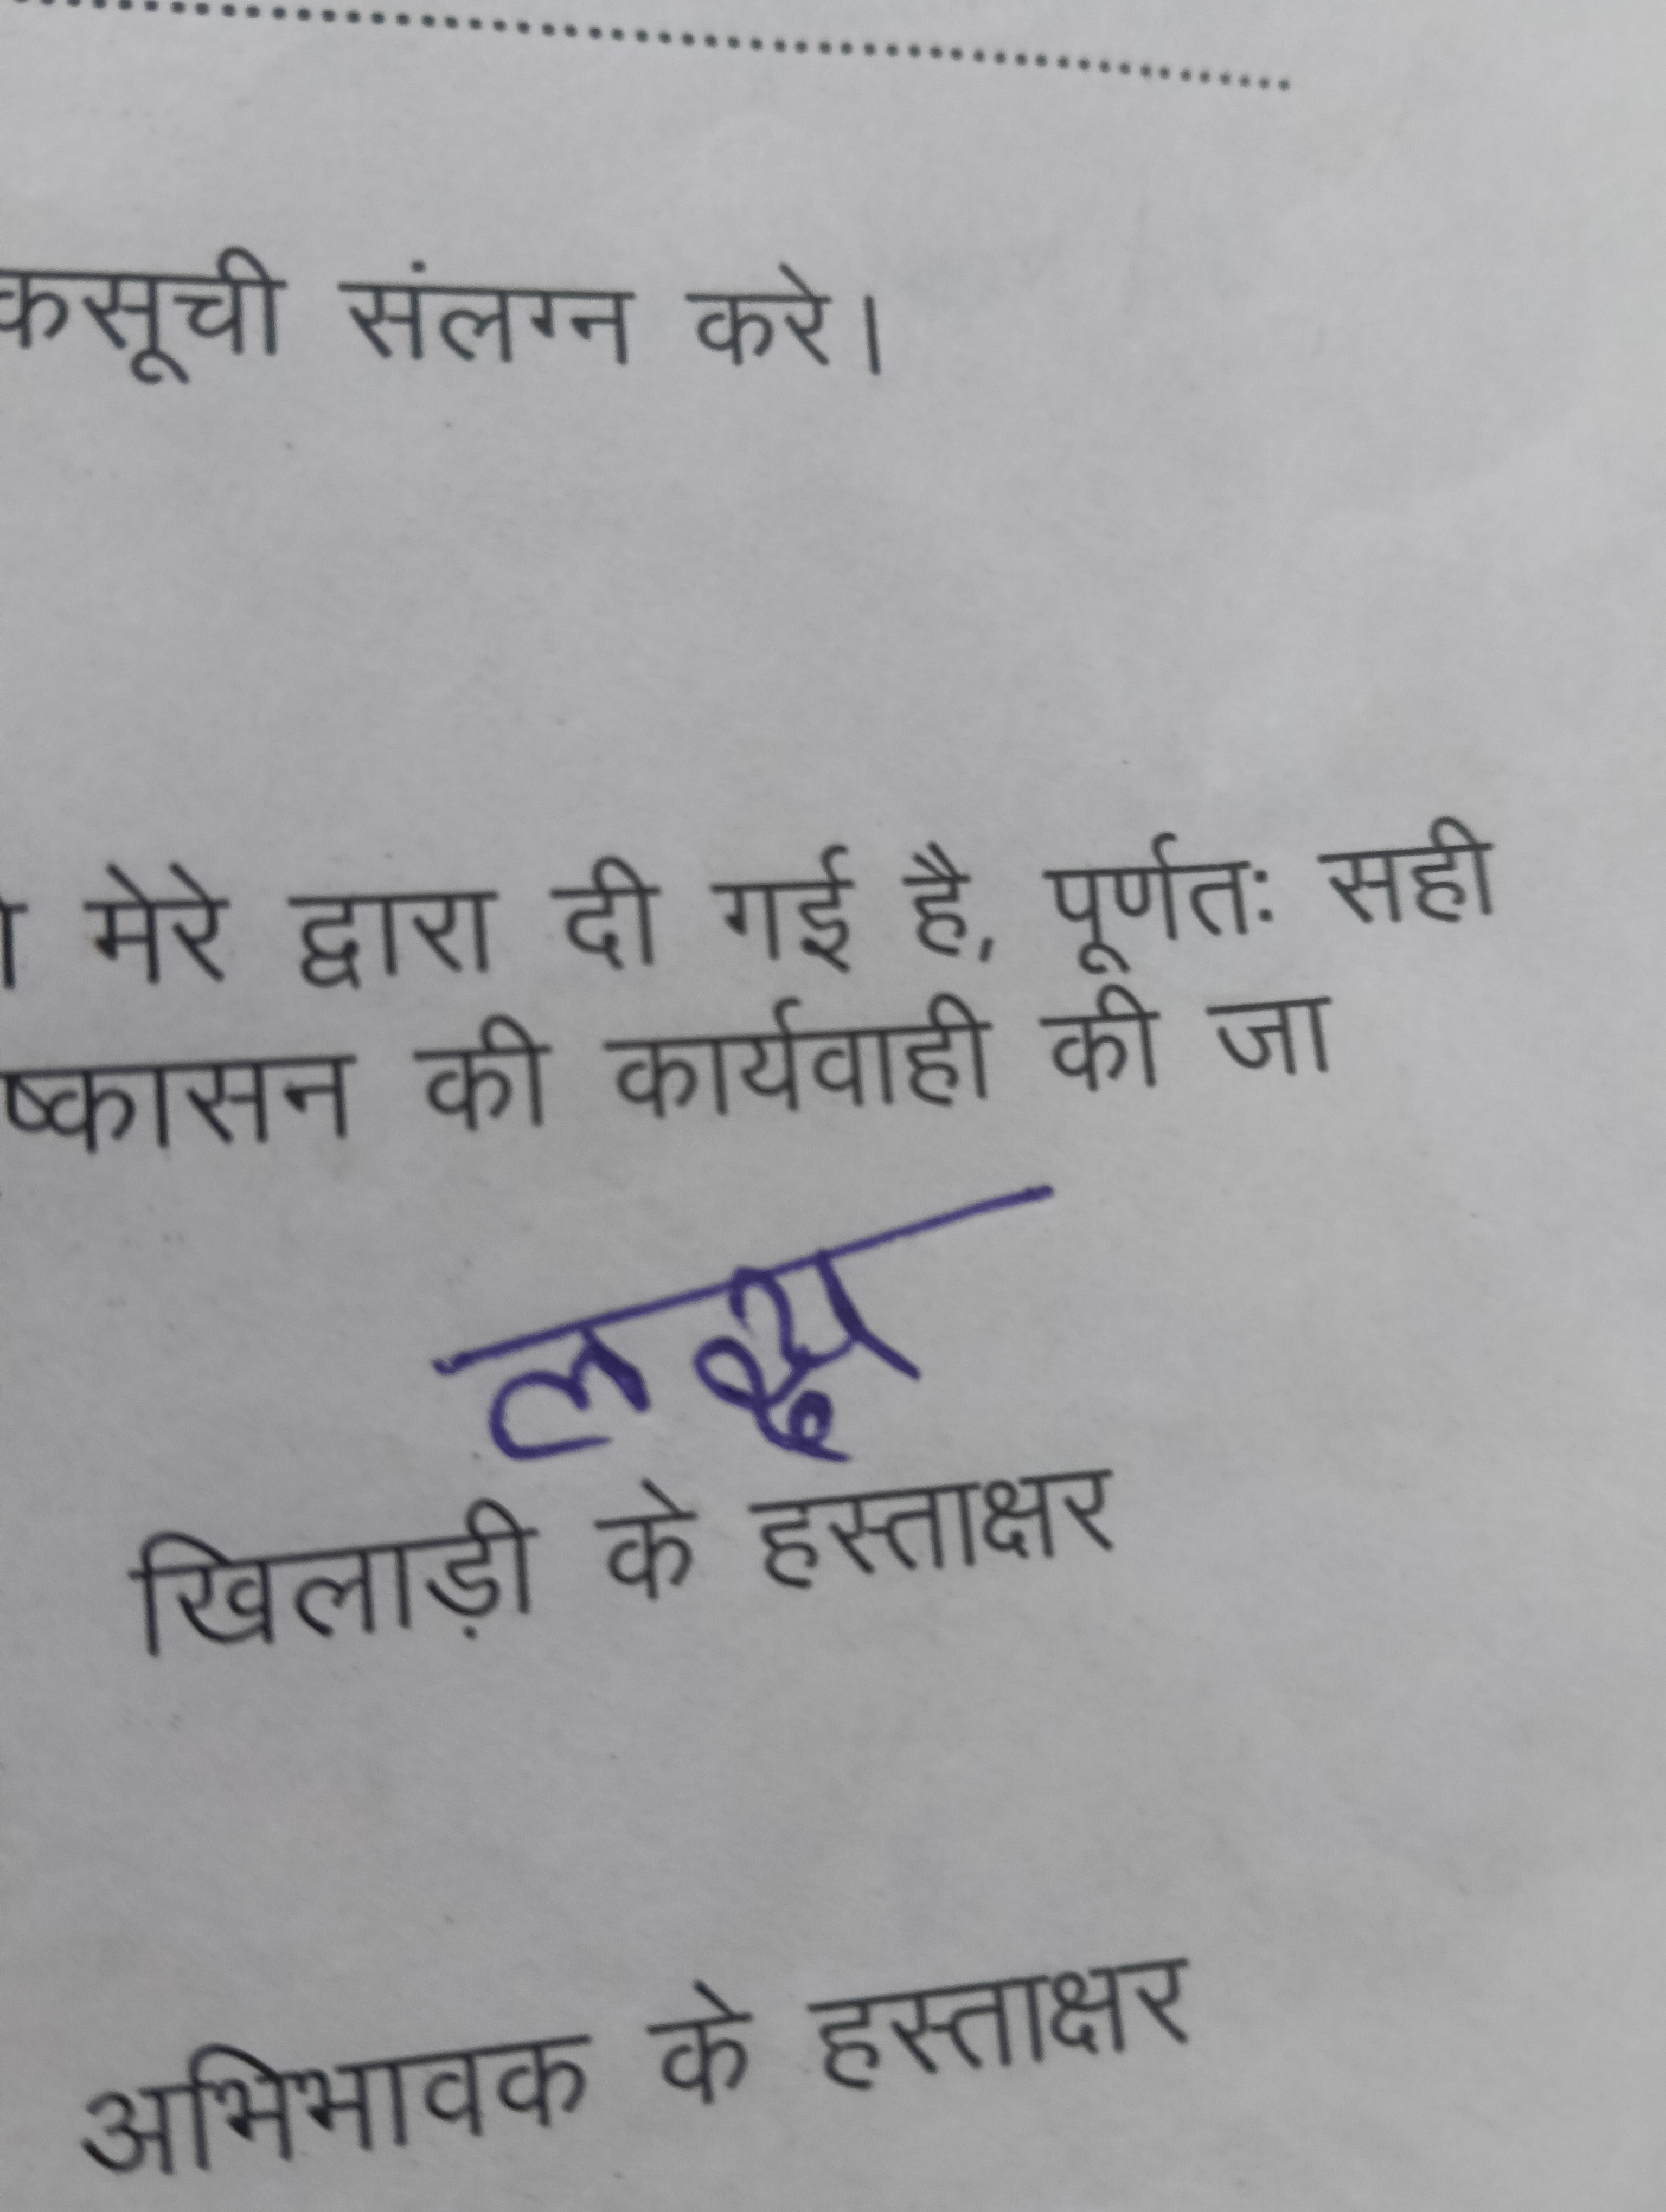 कसूची संलग्न करे।
मेरे द्वारा दी गई है, पूर्णतः सही
ष्कासन की कार्यवाही की जा
लक्ष्य
खिलाड़ी के हस्ताक्षर
अभिभावक के हस्ताक्षर